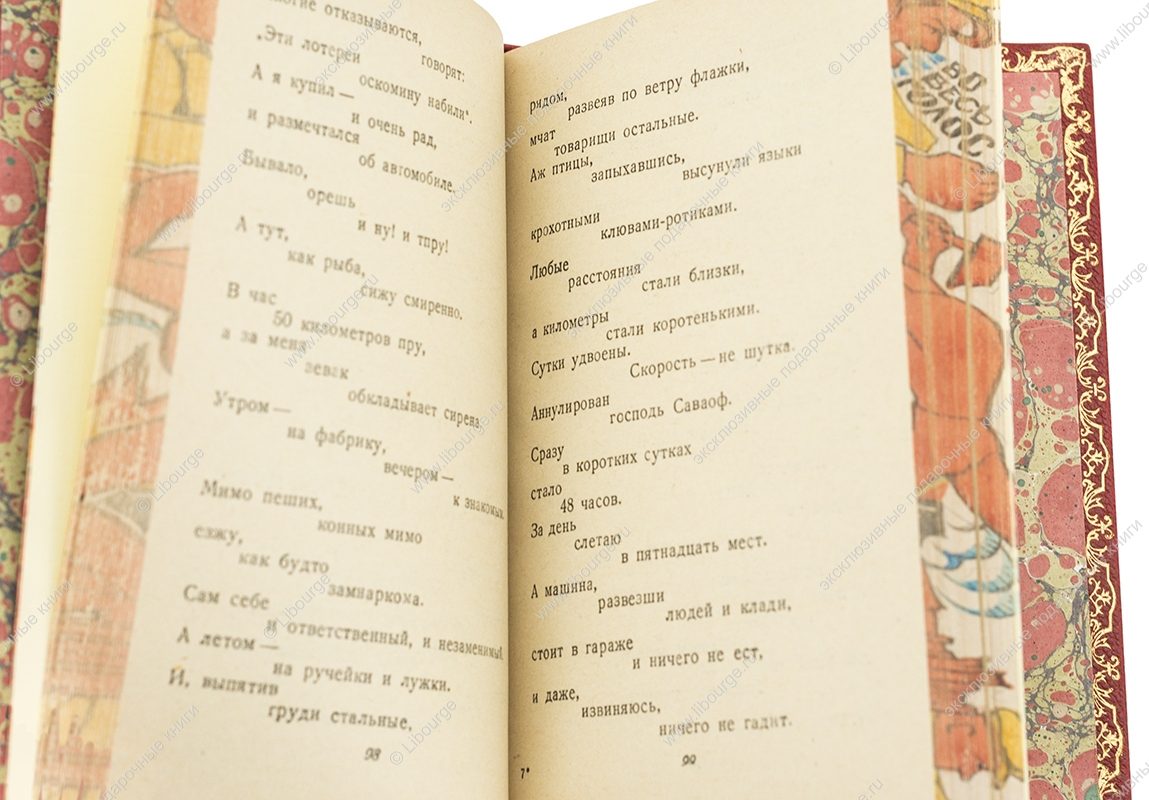 отказываются,
„Эти лотереи
говорят:
оскомину набили“.
А я купил —
и очень рад,
и размечтался
об автомобиле.
Бывало,
орешь
и ну! и тпру!
А тут,
как рыба,
сижу смиренно.
В час
50 километров пру,
а за меня
зевак
обкладывает сирена.
Утром —
на фабрику,
вечером —
к знакомым.
Мимо пеших,
конных мимо
езжу,
как будто
замнаркома.
Сам себе
и ответственный, и незаменимый.
А летом —
на ручейки и лужки.
И, выпятив
груди стальные,
98
рядом,
развеяв по ветру флажки,
мчат
товарищи остальные.
Аж птицы,
запыхавшись,
высунули языки
крохотными
клювами-ротиками.
Любые
расстояния
стали близки,
а километры
стали коротенькими.
Сутки удвоены.
Скорость — не шутка.
Аннулирован
господь Саваоф.
Сразу
в коротких сутках
стало
48 часов.
За день
слетаю
в пятнадцать мест.
А машина,
развезши
людей и клади,
стоит в гараже
и ничего не ест,
и даже,
извиняюсь,
ничего не гадит.
7*
99
ВО
ВЕСЬ
ГОЛОС
© Libourge.ru
www.libourge.ru
эксклюзивные подарочные книги